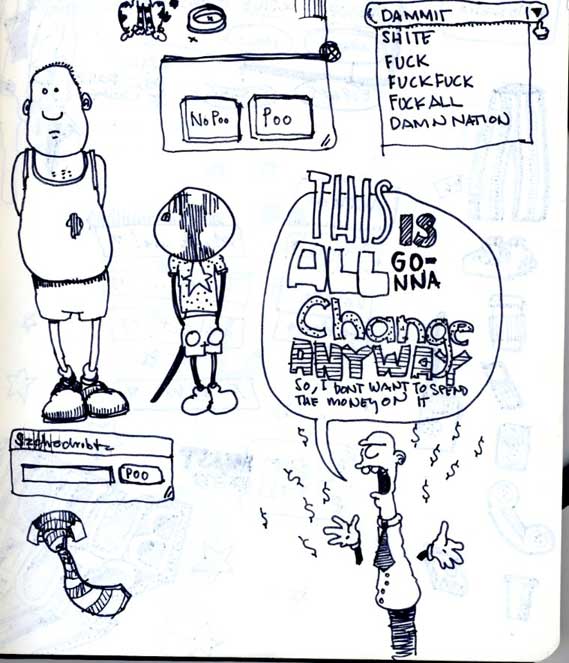 DAMMIT
SHITE
FUCK
FUCKFUCK
FUCKALL
DAMN NATION
No Poo
Poo
THIS
IS
ALL
GO-
NNA
Change
ANYWAY
SO, I DONT WANT TO SPEND
THE MONEY ON IT
POO
$ $ $ $ $ $ $ $ $ $ $ $ $